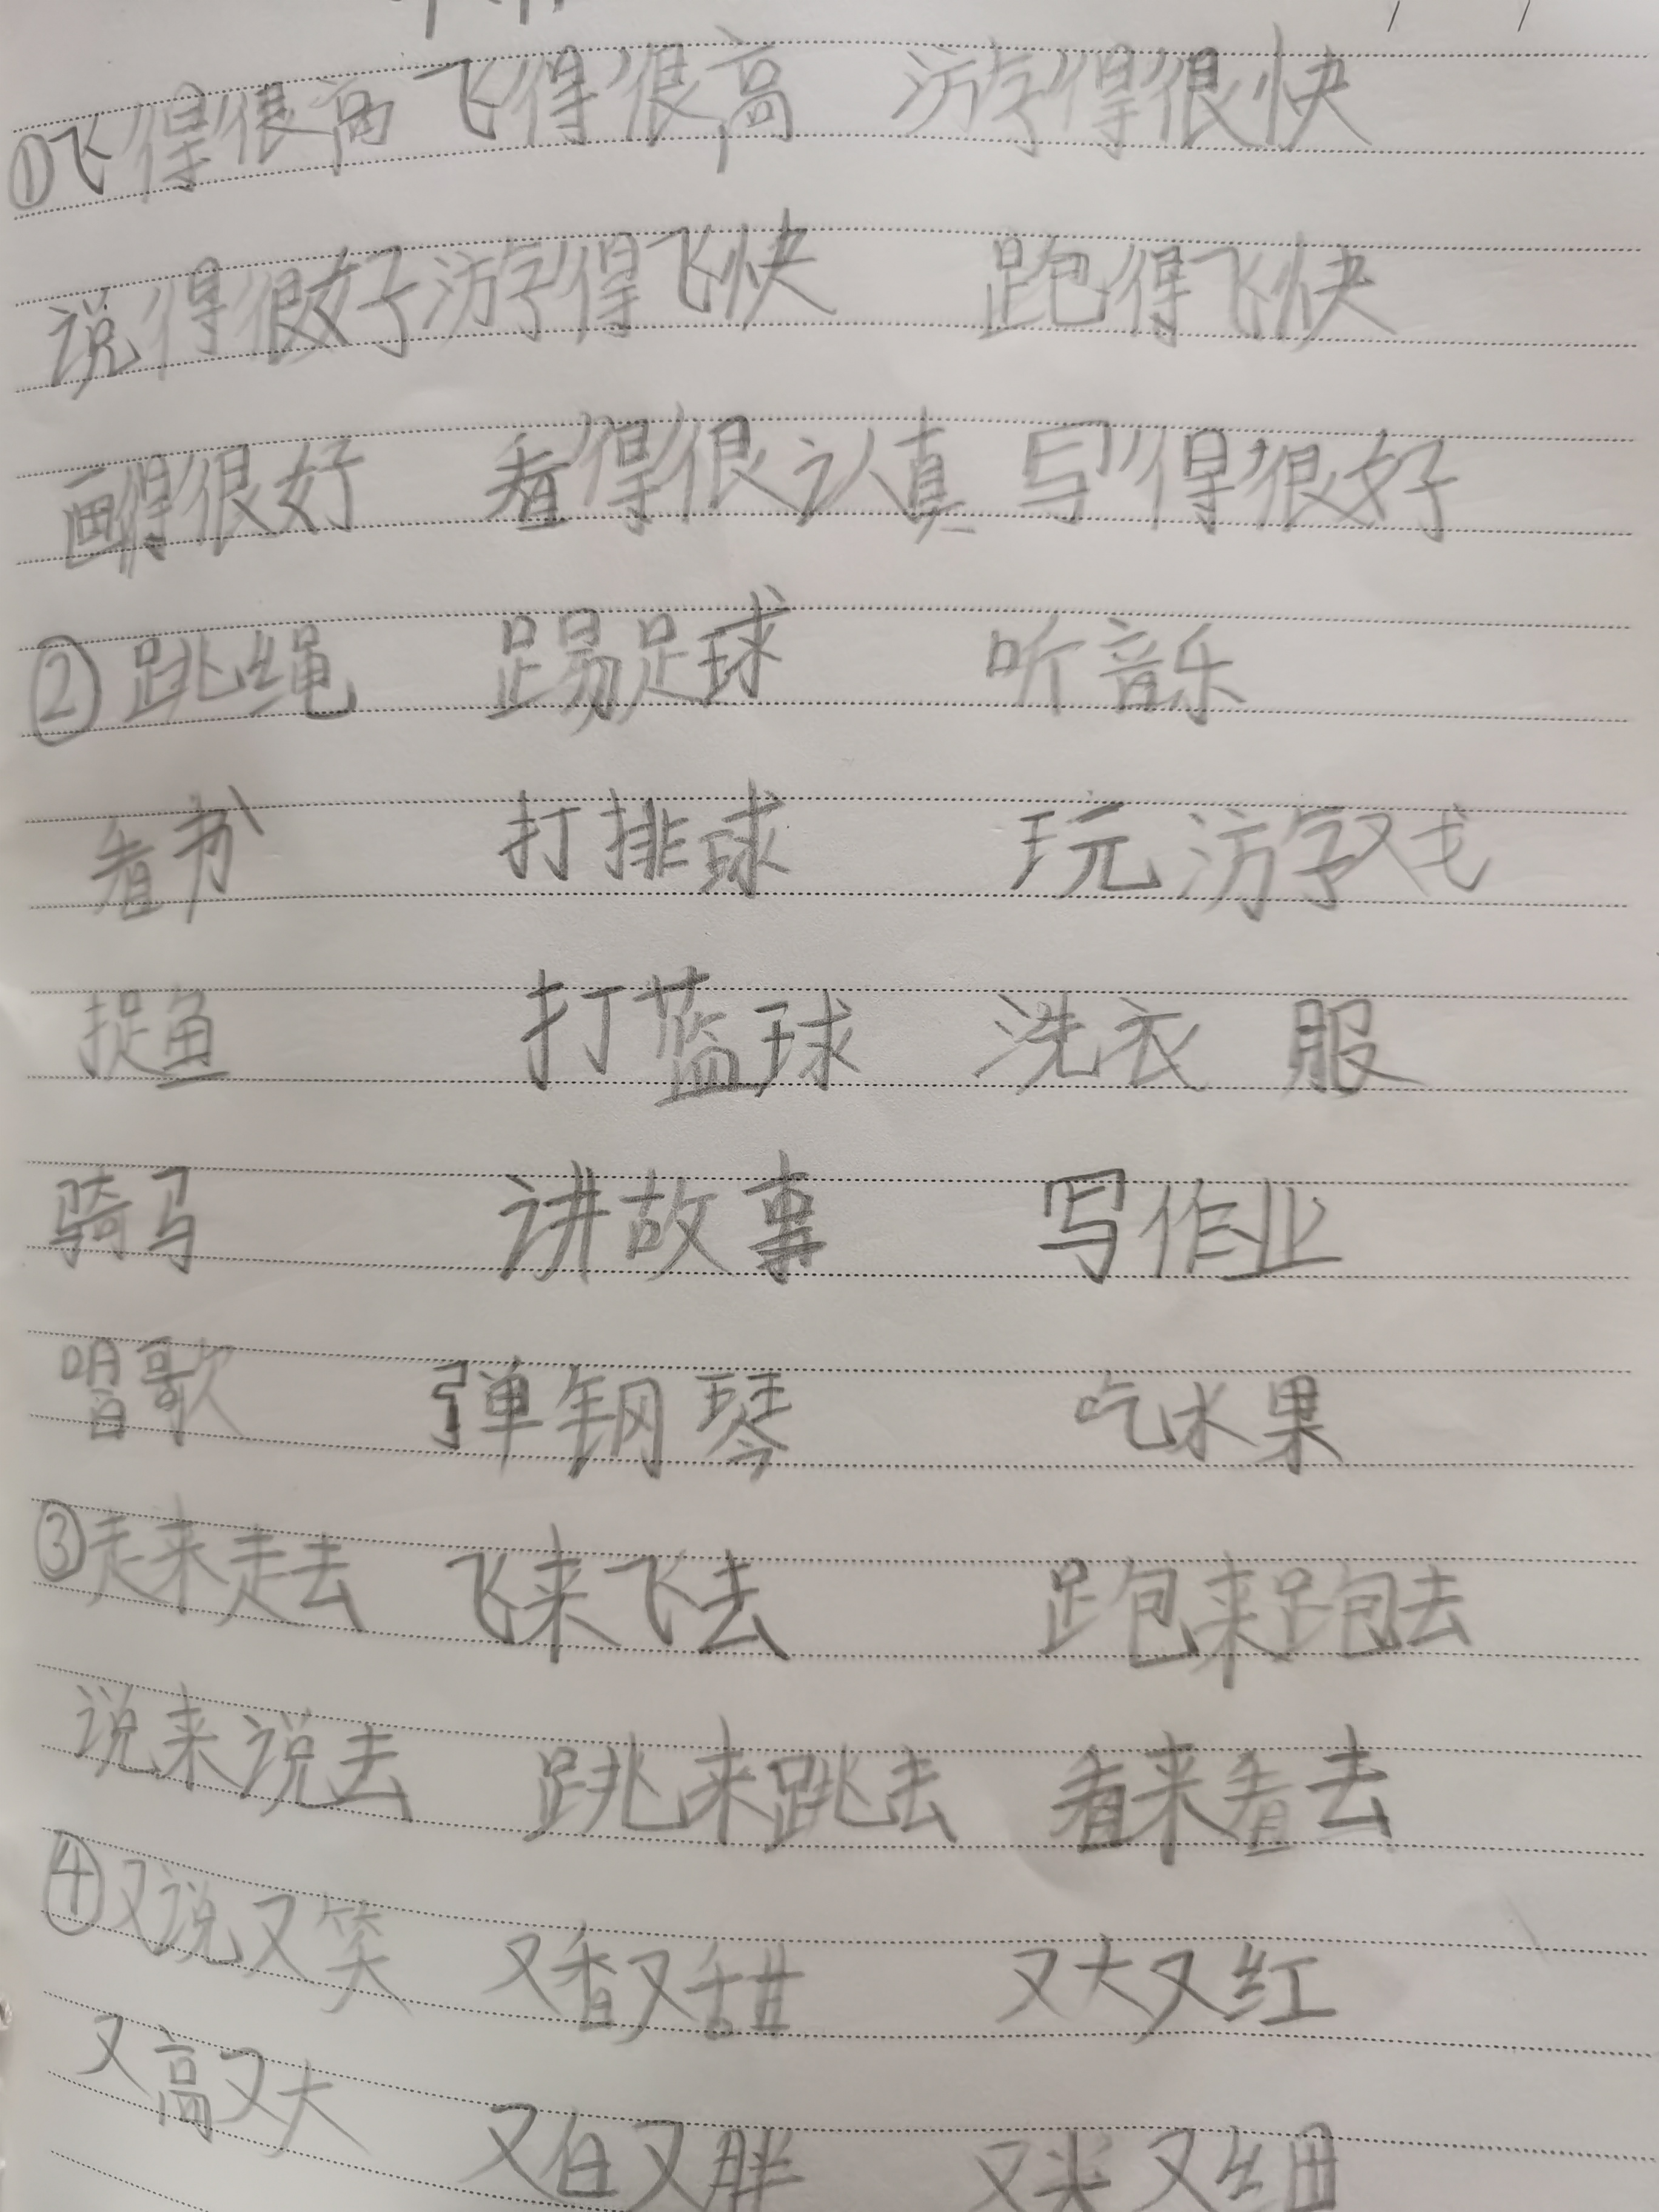 ①飞得很高 飞得很高 游得很快
说得很好 游得飞快 跑得飞快
画得很好 看得很认真 写得很好
②跳绳 踢足球 听音乐
看书 打排球 玩游戏
捉鱼 打蓝球 洗衣服
骑马 讲故事 写作业
唱歌 弹钢琴 吃水果
③走来走去 飞来飞去 跑来跑去
说来说去 跳来跳去 看来看去
④又说又笑 又香又甜 又大又红
又高又大
又白又胖 又尖又细